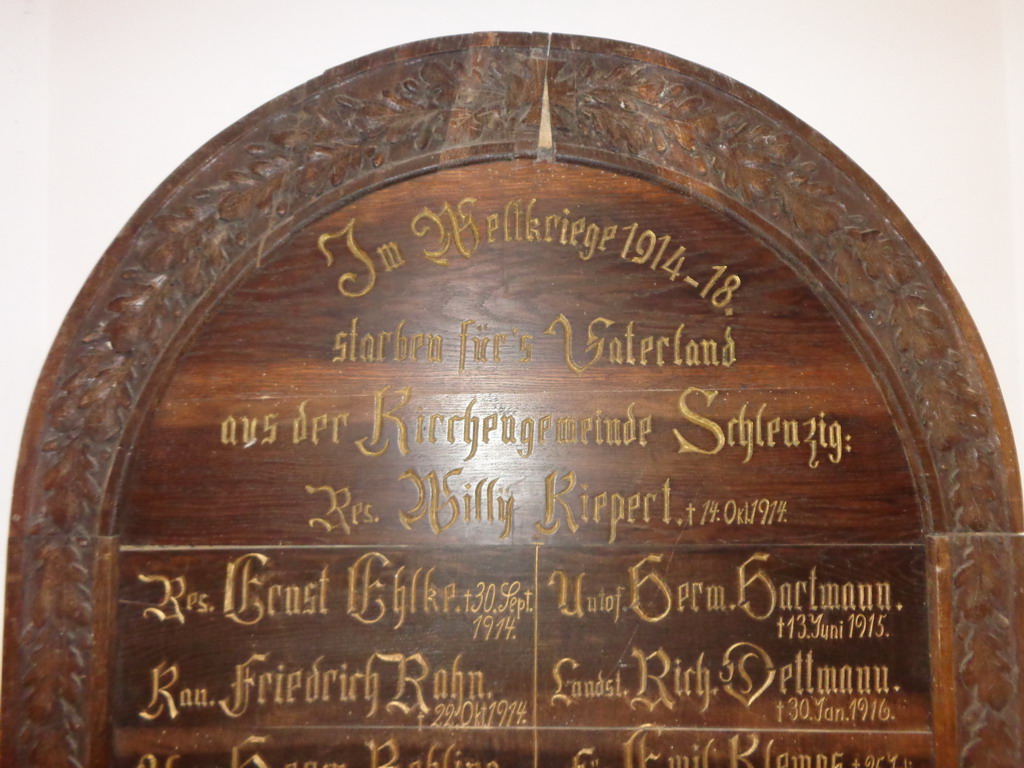 Im Weltkriege 1914-18.
starben für's Vaterland
aus der Kirchengemeinde Schlenzig:
Res. Willy Kiepert. † 14. Okt. 1914.
Res. Ernst Ehlke. † 30. Sept. 1914.
Untof. Herm. Hartmann. † 13. Juni 1915.
Kan. Friedrich Rahn. † 22. Okt. 1914.
Landst. Rich. Dettmann. † 30. Jan. 1916.
Herm.
Emil